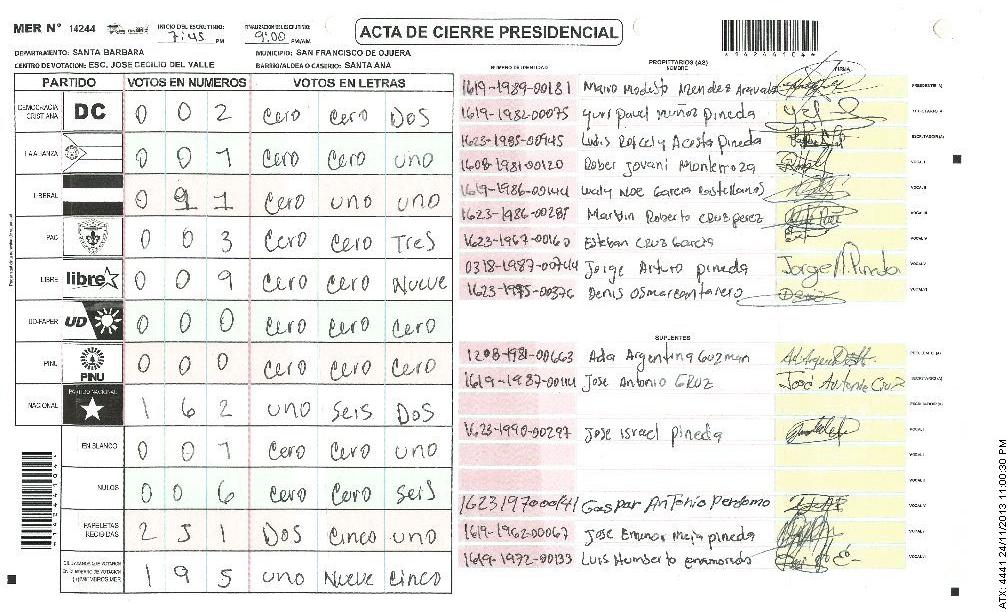 MER Nº 14244 INICIO DEL ESCRUTINIO: 7:45 PM FINALIZACION DEL ESCRUTINIO: 9:00 PM/AM ACTA DE CIERRE PRESIDENCIAL
DEPARTAMENTO: SANTA BARBARA MUNICIPIO: SAN FRANCISCO DE OJUERA
CENTRO DE VOTACION: ESC. JOSE CECILIO DEL VALLE BARRIO/ALDEA O CASERIO: SANTA ANA
PARTIDO VOTOS EN NUMEROS VOTOS EN LETRAS
DEMOCRACIA CRISTIANA DC 0 0 2 Cero Cero Dos
LA ALIANZA 0 0 1 Cero Cero uno
LIBERAL 0 1 1 Cero uno uno
PAC 0 0 3 Cero Cero Tres
LIBRE libre 0 0 9 Cero Cero Nueve
UD-FAPER UD 0 0 0 Cero Cero Cero
PINU PINU 0 0 0 Cero Cero Cero
NACIONAL PARTIDO NACIONAL 1 6 2 uno Seis Dos
EN BLANCO 0 0 1 Cero Cero uno
NULOS 0 0 6 Cero Cero Seis
PAPELETAS RECIBIDAS 2 5 1 Dos Cinco uno
1 9 5 uno Nueve Cinco
NUMERO DE IDENTIDAD PROPIETARIOS (AS) NOMBRE FIRMA
1619-1989-00181 Mauro Modesto Mendez PRESIDENTE (A)
1619-1982-00075 yuri pavel muñoz pineda SECRETARIO (A)
1623-1985-00445 Acosta Pineda ESCRUTADOR (A)
1608-1981-00120 Rober Jovani VOCAL I
Noe Garcia VOCAL II
1623-1986-00287 Martin Roberto cruz perez VOCAL III
1623-1967-00160 Esteban Cruz Garcia
Jorge Arturo pineda Jorge A. Pineda
Denis
SUPLENTES
1208-1981-00663 Ada Argentina Guzman PRESIDENTE (A)
Jose Antonio CRUZ SECRETARIO (A)
ESCRUTADOR (A)
1623-1990-00297 Jose Israel pineda VOCAL I
Gaspar Antonio Perdomo
1619-1962-00067 Jose mejia pineda
1619-1972-00133 Luis Humberto enamorado
ATX: 4441 24/11/2013 11:00:30 PM